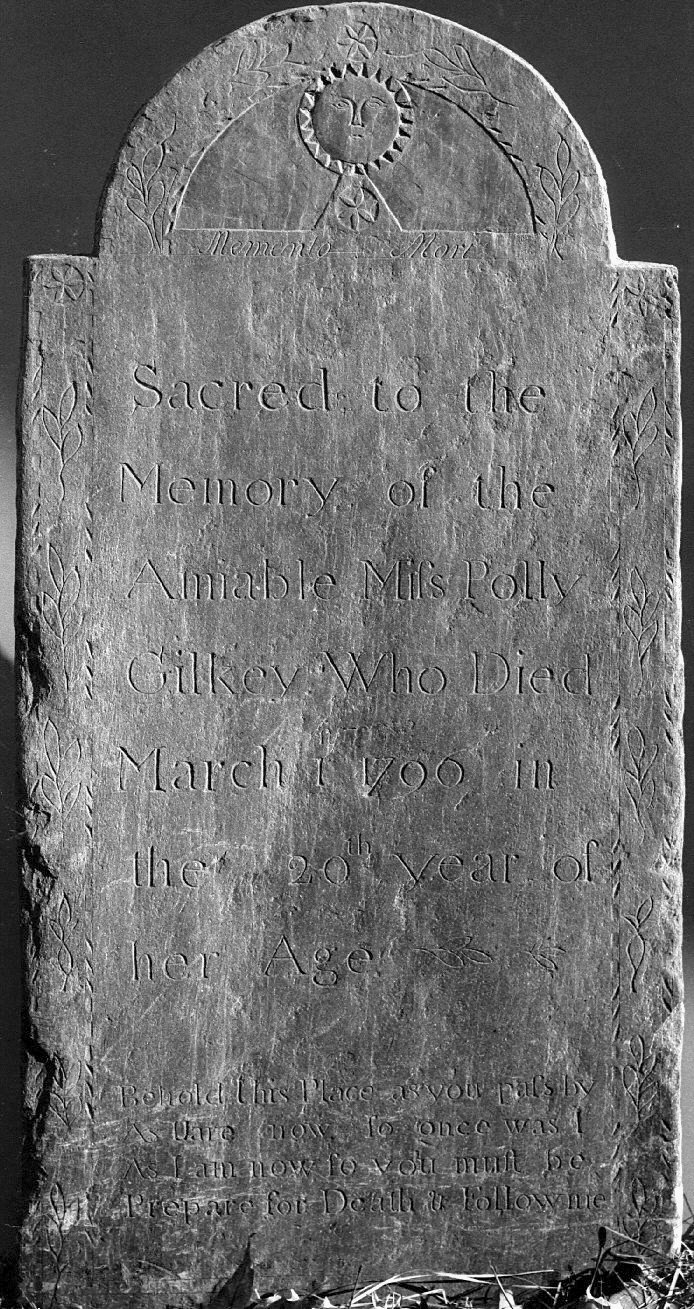 Memento Mori
Sacred to the
Memory of the
Amiable Miſs Polly
Gilkey Who Died
March 1 1790 in
the 20th year of
her Age
Behold this Place as you paſs by
As Uare now ſo once was I
As I am now ſo you muſt be
Prepare for Death & Follow me